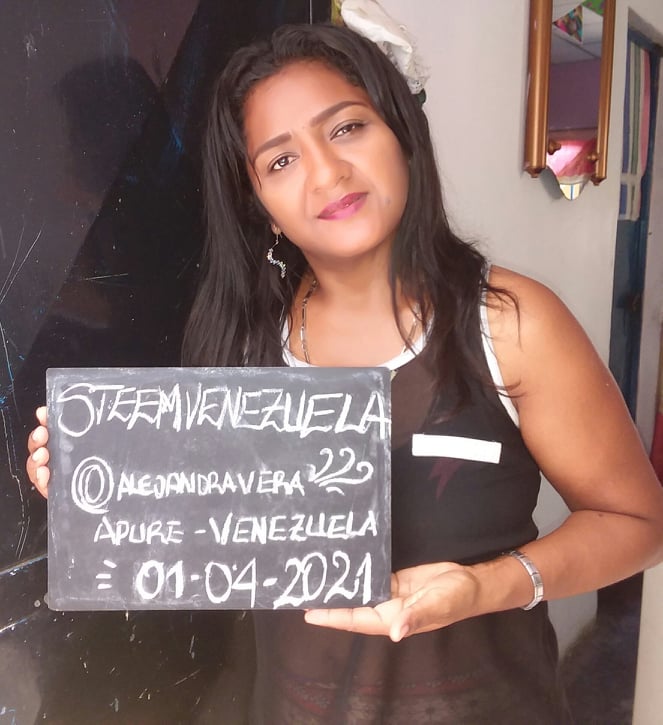 STEEMVENEZUELA
@ALEJANDRAVERA
APURE - VENEZUELA
= 01-04-2021